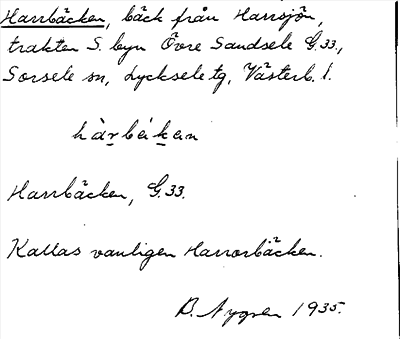 Harrbäcken, bäck från Harrsjön,
trakten S. byn Övre Sandsele G.33,
Sorsele sn, Lycksele tg, Västerb. l.
hàrbèkan
Harrbäcken, G.33.
Kallas vanligen Harrorbäcken.
B. Nygren 1935.